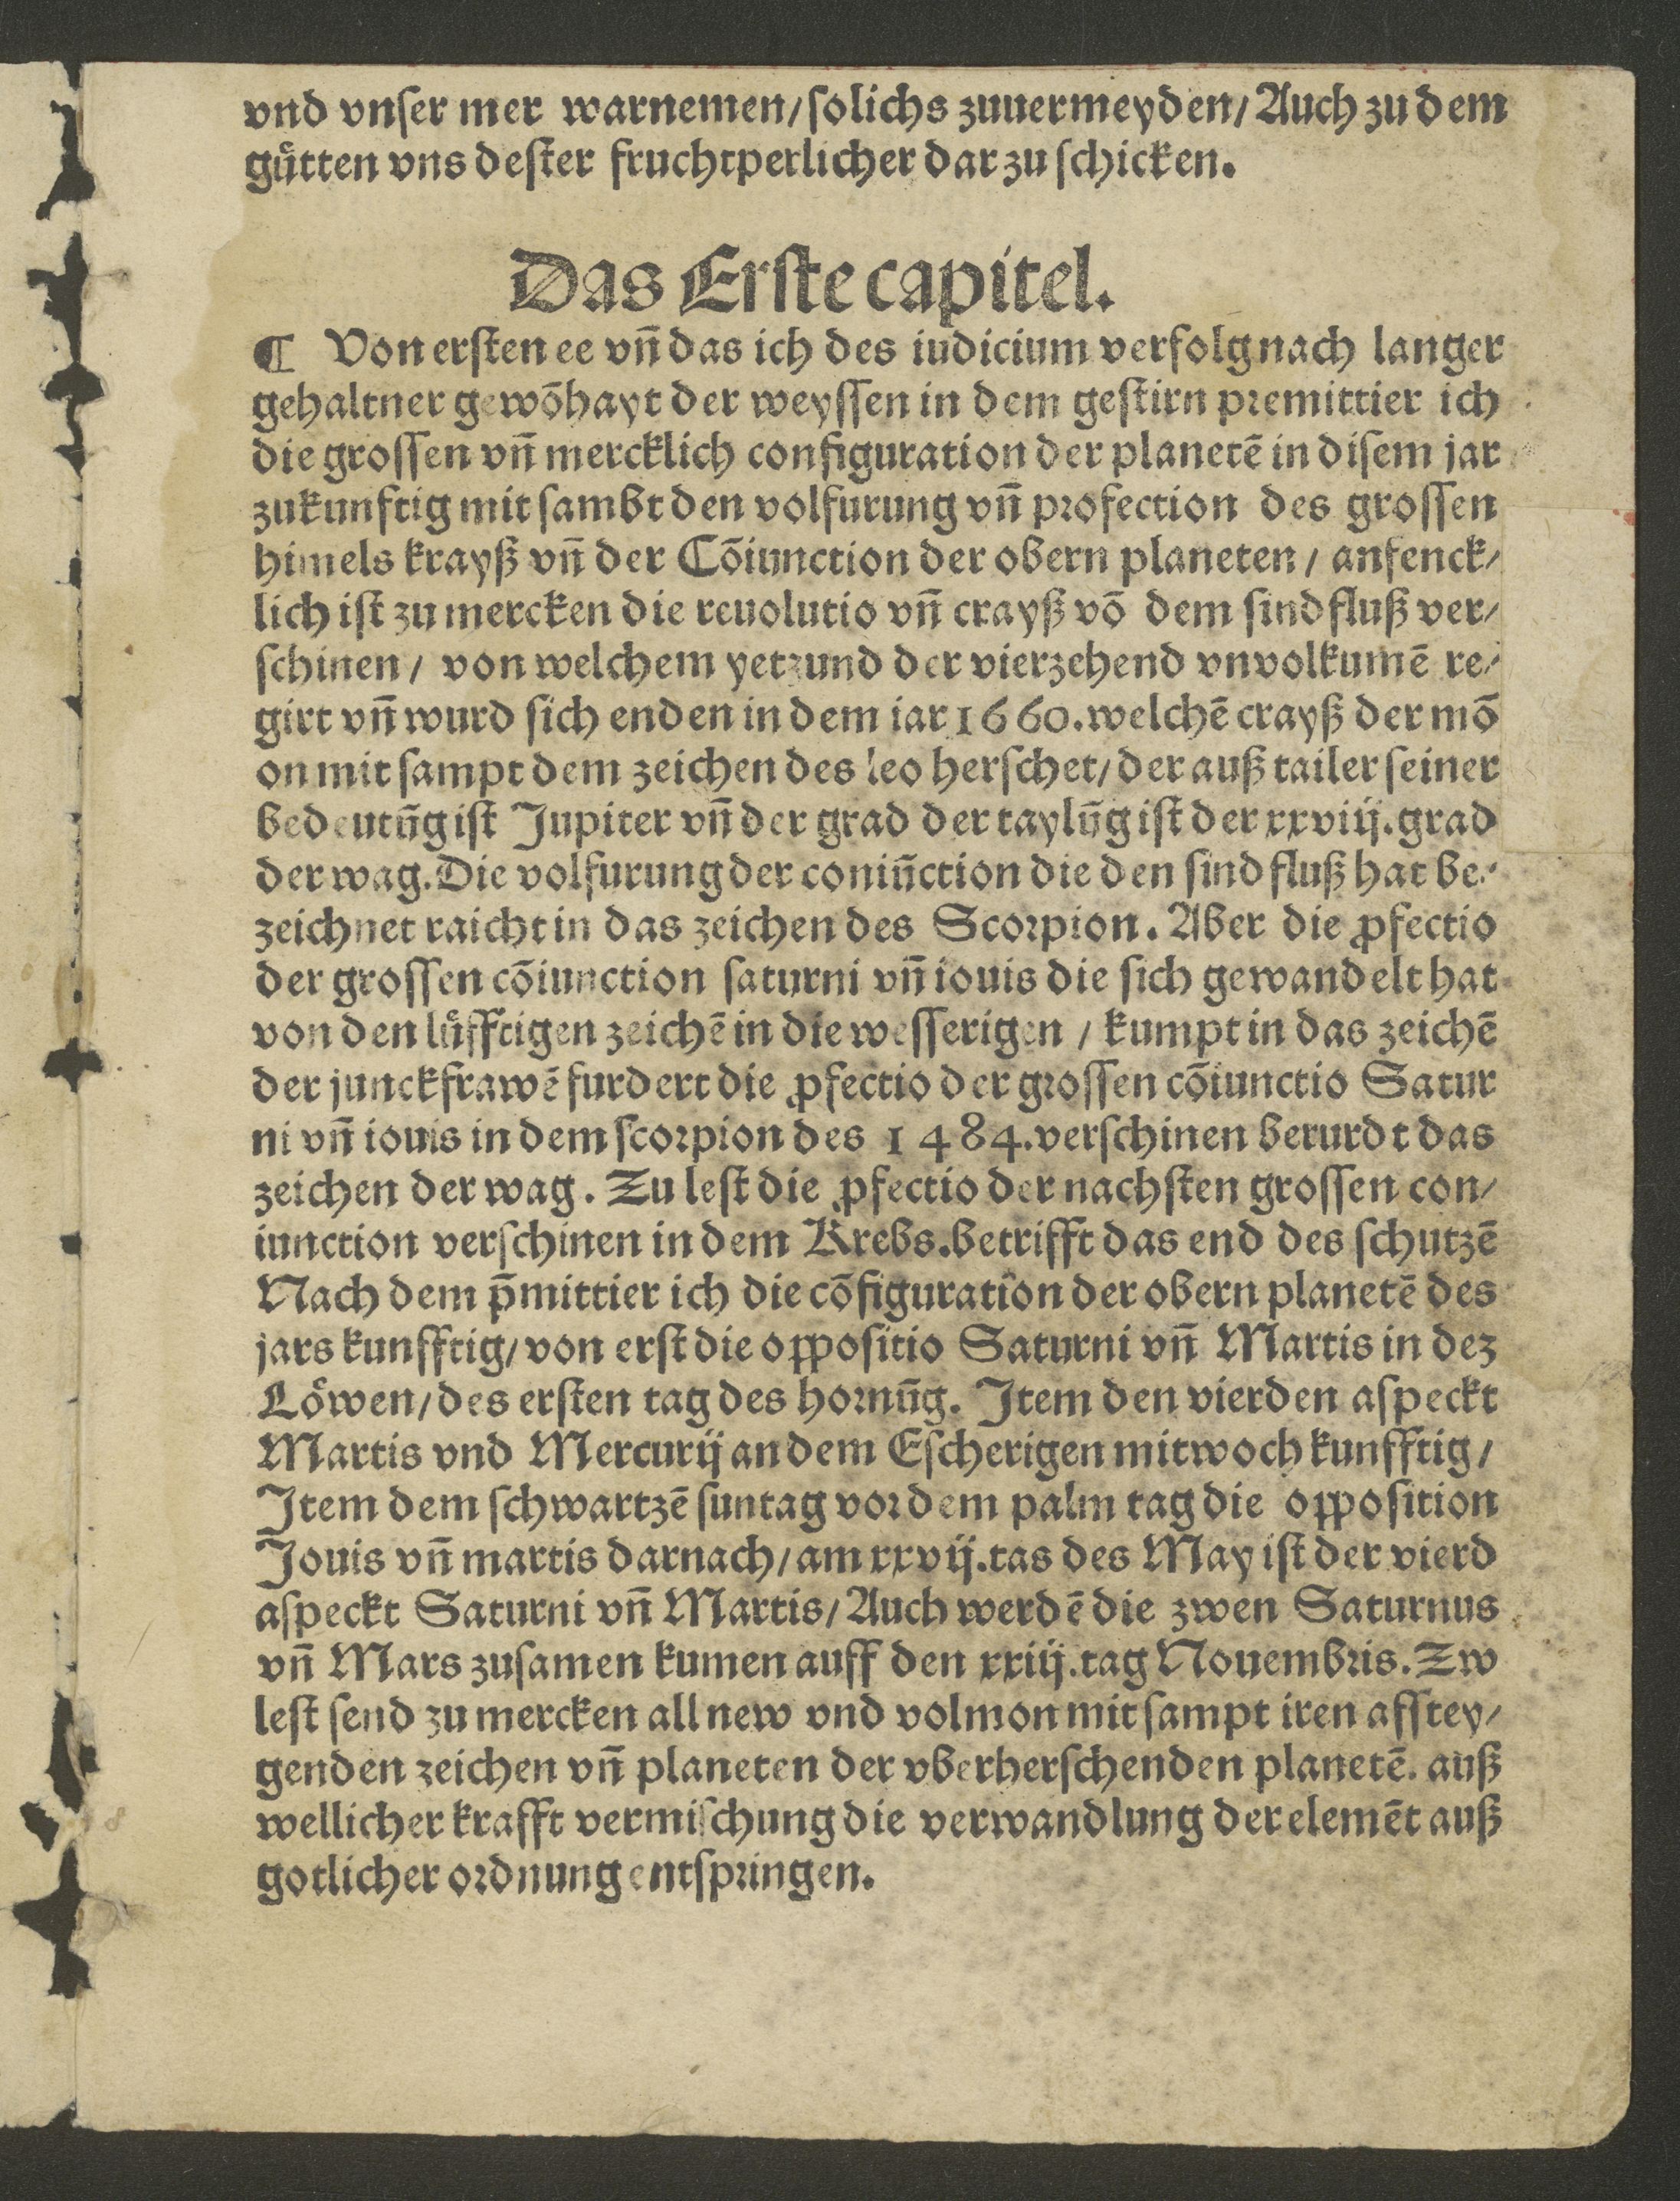 vnd vnſer mer warnemen/ ſolichs zuuermeyden/ Auch zu dem
guͤtten vns deſter fruchtperlicher dar zu ſchicken.
Das Erſte capitel.
¶ Von erſten ee vñ das ich des iudicium verfolg nach langer
gehaltner gewõhayt der weyſſen in dem geſtirn premittier ich
die groſſen vñ mercklich configuration der planetẽ in diſem jar
zukunftig mit ſambt den volfurung vñ profection des groſſen
himels krayß vñ der Cõiunction der obern planeten / anfenck⸗
lich iſt zu mercken die reuolutio vñ crayß võ dem ſindfluß ver⸗
ſchinen / von welchem yetzund der vierzehend vnvolkumẽ re⸗
girt vñ wurd ſich enden in dem iar 1660. welchẽ crayß der mõ
on mit ſampt dem zeichen des leo herſchet/ der auß tailer ſeiner
bedeutũg iſt Jupiter vñ der grad der taylũg iſt der xxviij. grad
der wag. Die volfurung der coniũction die den ſindfluß hat be⸗
zeichnet raicht in das zeichen des Scorpion. Aber die ꝓfectio
der groſſen cõiunction ſaturni vñ iouis die ſich gewandelt hat
von den luͤfftigen zeichẽ in die weſſerigen / kumpt in das zeichẽ
der junckfrawẽ furdert die ꝓfectio der groſſen cõiunctio Satur
ni vñ iouis in dem ſcorpion des 1484. verſchinen berurdt das
zeichen der wag. Zu leſt die ꝓfectio der nachſten groſſen con⸗
iunction verſchinen in dem Krebs. betrifft das end des ſchutzẽ
Nach dem p̄mittier ich die cõfiguration der obern planetẽ des
jars kunfftig/ von erſt die oppoſitio Saturni vñ Martis in dez
Loͤwen/ des erſten tag des hornũg. Item den vierden aſpeckt
Martis vnd Mercurij an dem Eſcherigen mitwoch kunfftig/
Item dem ſchwartzẽ ſuntag vor dem palm tag die oppoſition
Jouis vñ martis darnach/ am xxvij. tas des May iſt der vierd
aſpeckt Saturni vñ Martis/ Auch werdẽ die zwen Saturnus
vñ Mars zuſamen kumen auff den xxiij. tag Nouembris. Zw
leſt ſend zu mercken all new vnd volmon mit ſampt iren afſtey⸗
genden zeichen vñ planeten der vberherſchenden planetẽ. auß
wellicher krafft vermiſchung die verwandlung der elemẽt auß
gotlicher ordnung entſpringen.